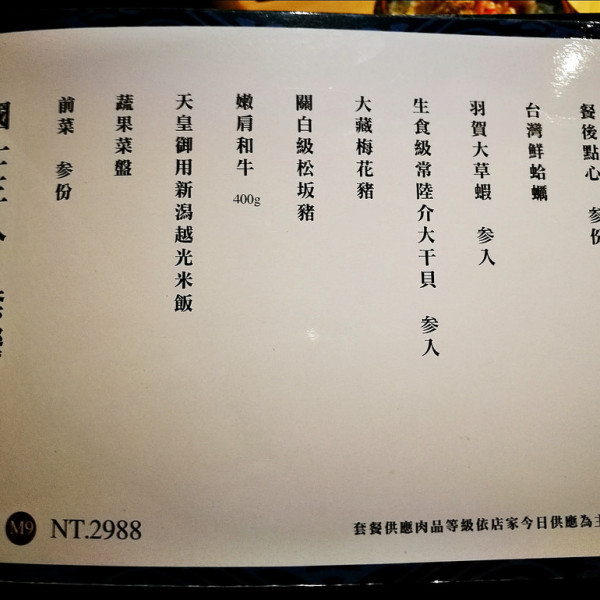 前菜 参份
蔬果菜盤
天皇御用新潟越光米飯
嫩肩和牛 400g
關白級松坂豬
大藏梅花豬
生食級常陸介大干貝 参入
羽賀大草蝦 参入
台灣鮮蛤蠣
餐後點心 参份
M9 NT.2988
套餐供應肉品等級依店家今日供應為主